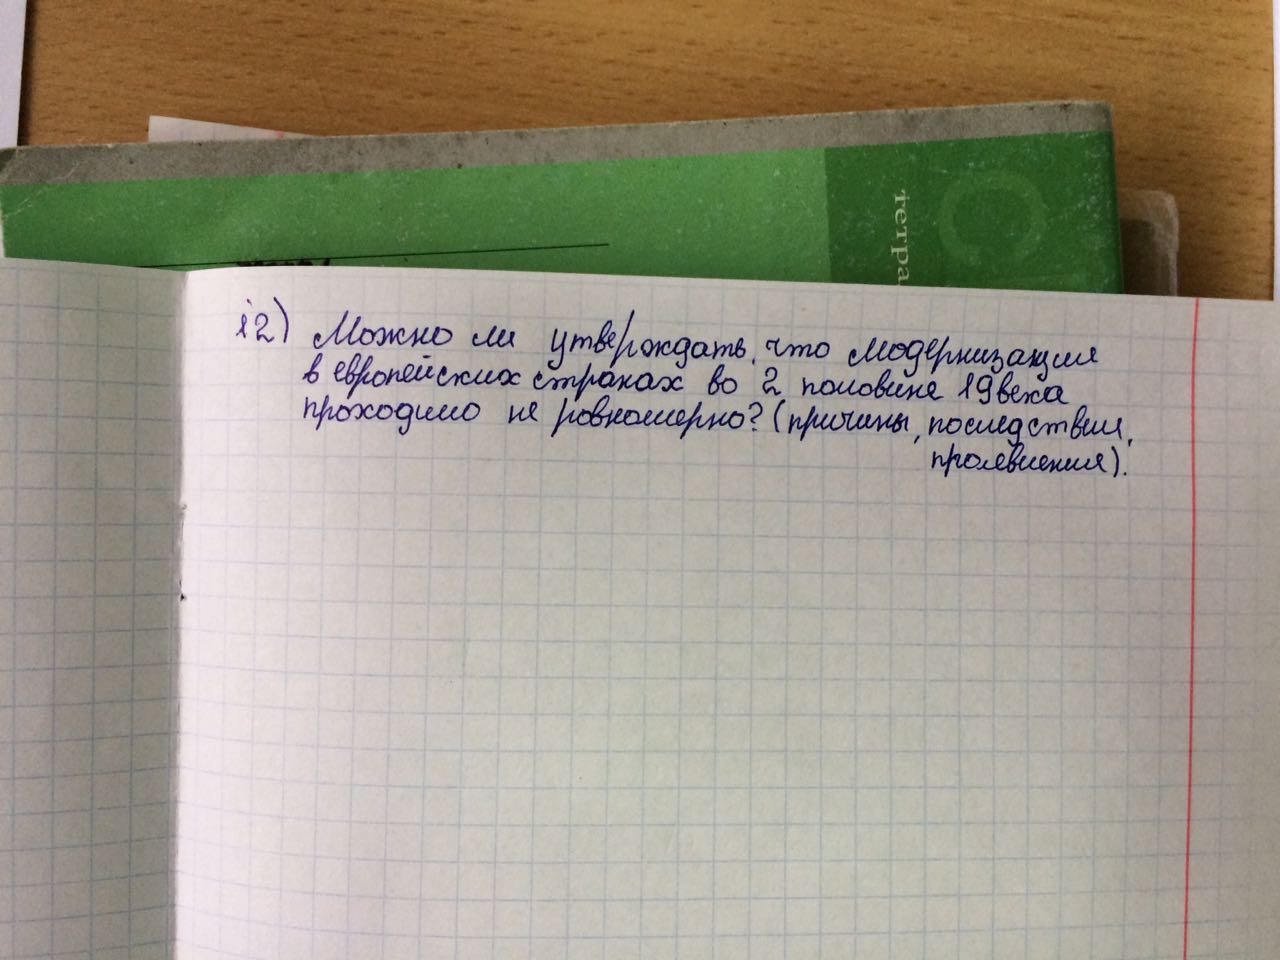 тетра
12) Можно ли утверждать, что модернизация
в европейских странах во 2 половине 19 века
проходило не равномерно? (причины, последствия,
проявления).